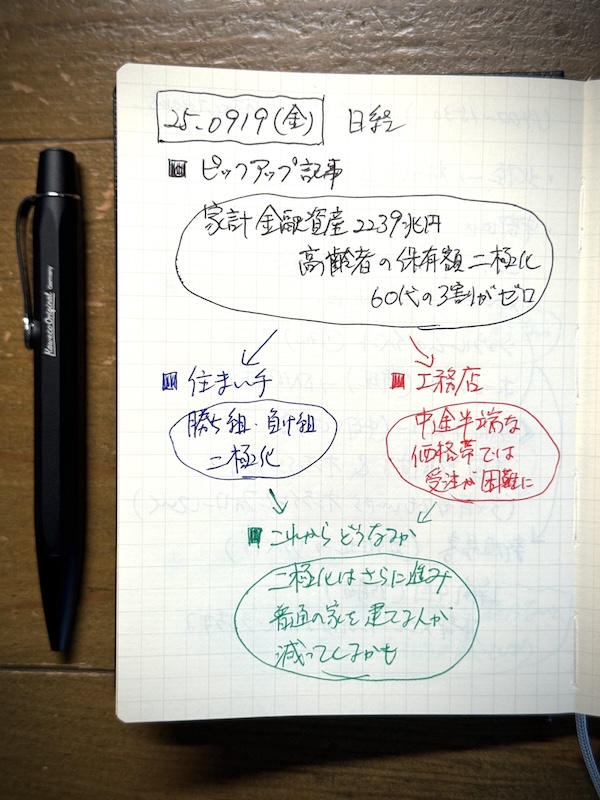 Kaweco-Original Germany
25.0919(金) 日経
ピックアップ記事
家計金融資産2239兆円
高齢者の保有額二極化
60代の3割がゼロ
住まい手
勝ち組・負け組
二極化
工務店
中途半端な
価格帯では
受注が困難に
これからどうなるか
二極化はさらに進み
普通の家を建てる人が
減ってくるかも